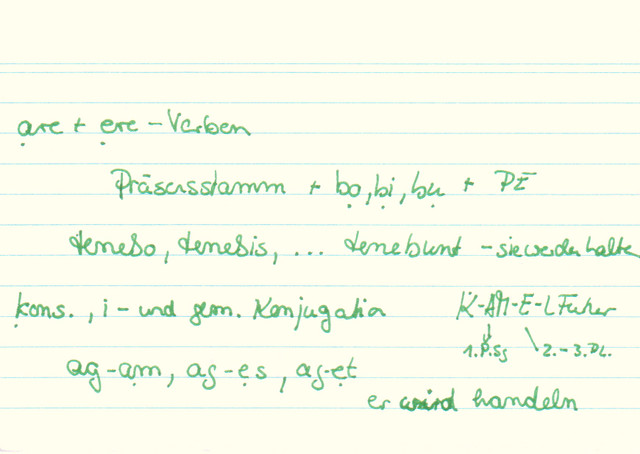 are + ere - Verben
Präsensstamm + bo, bi, bu + PE
tenebo, tenebis, ... tenebunt - sie werden halten
kons., i- und gem. Konjugation K-AM-E-L Futur
1.P.Sg 2.-3.Pl.
ag-am, ag-es, ag-et
er wird handeln